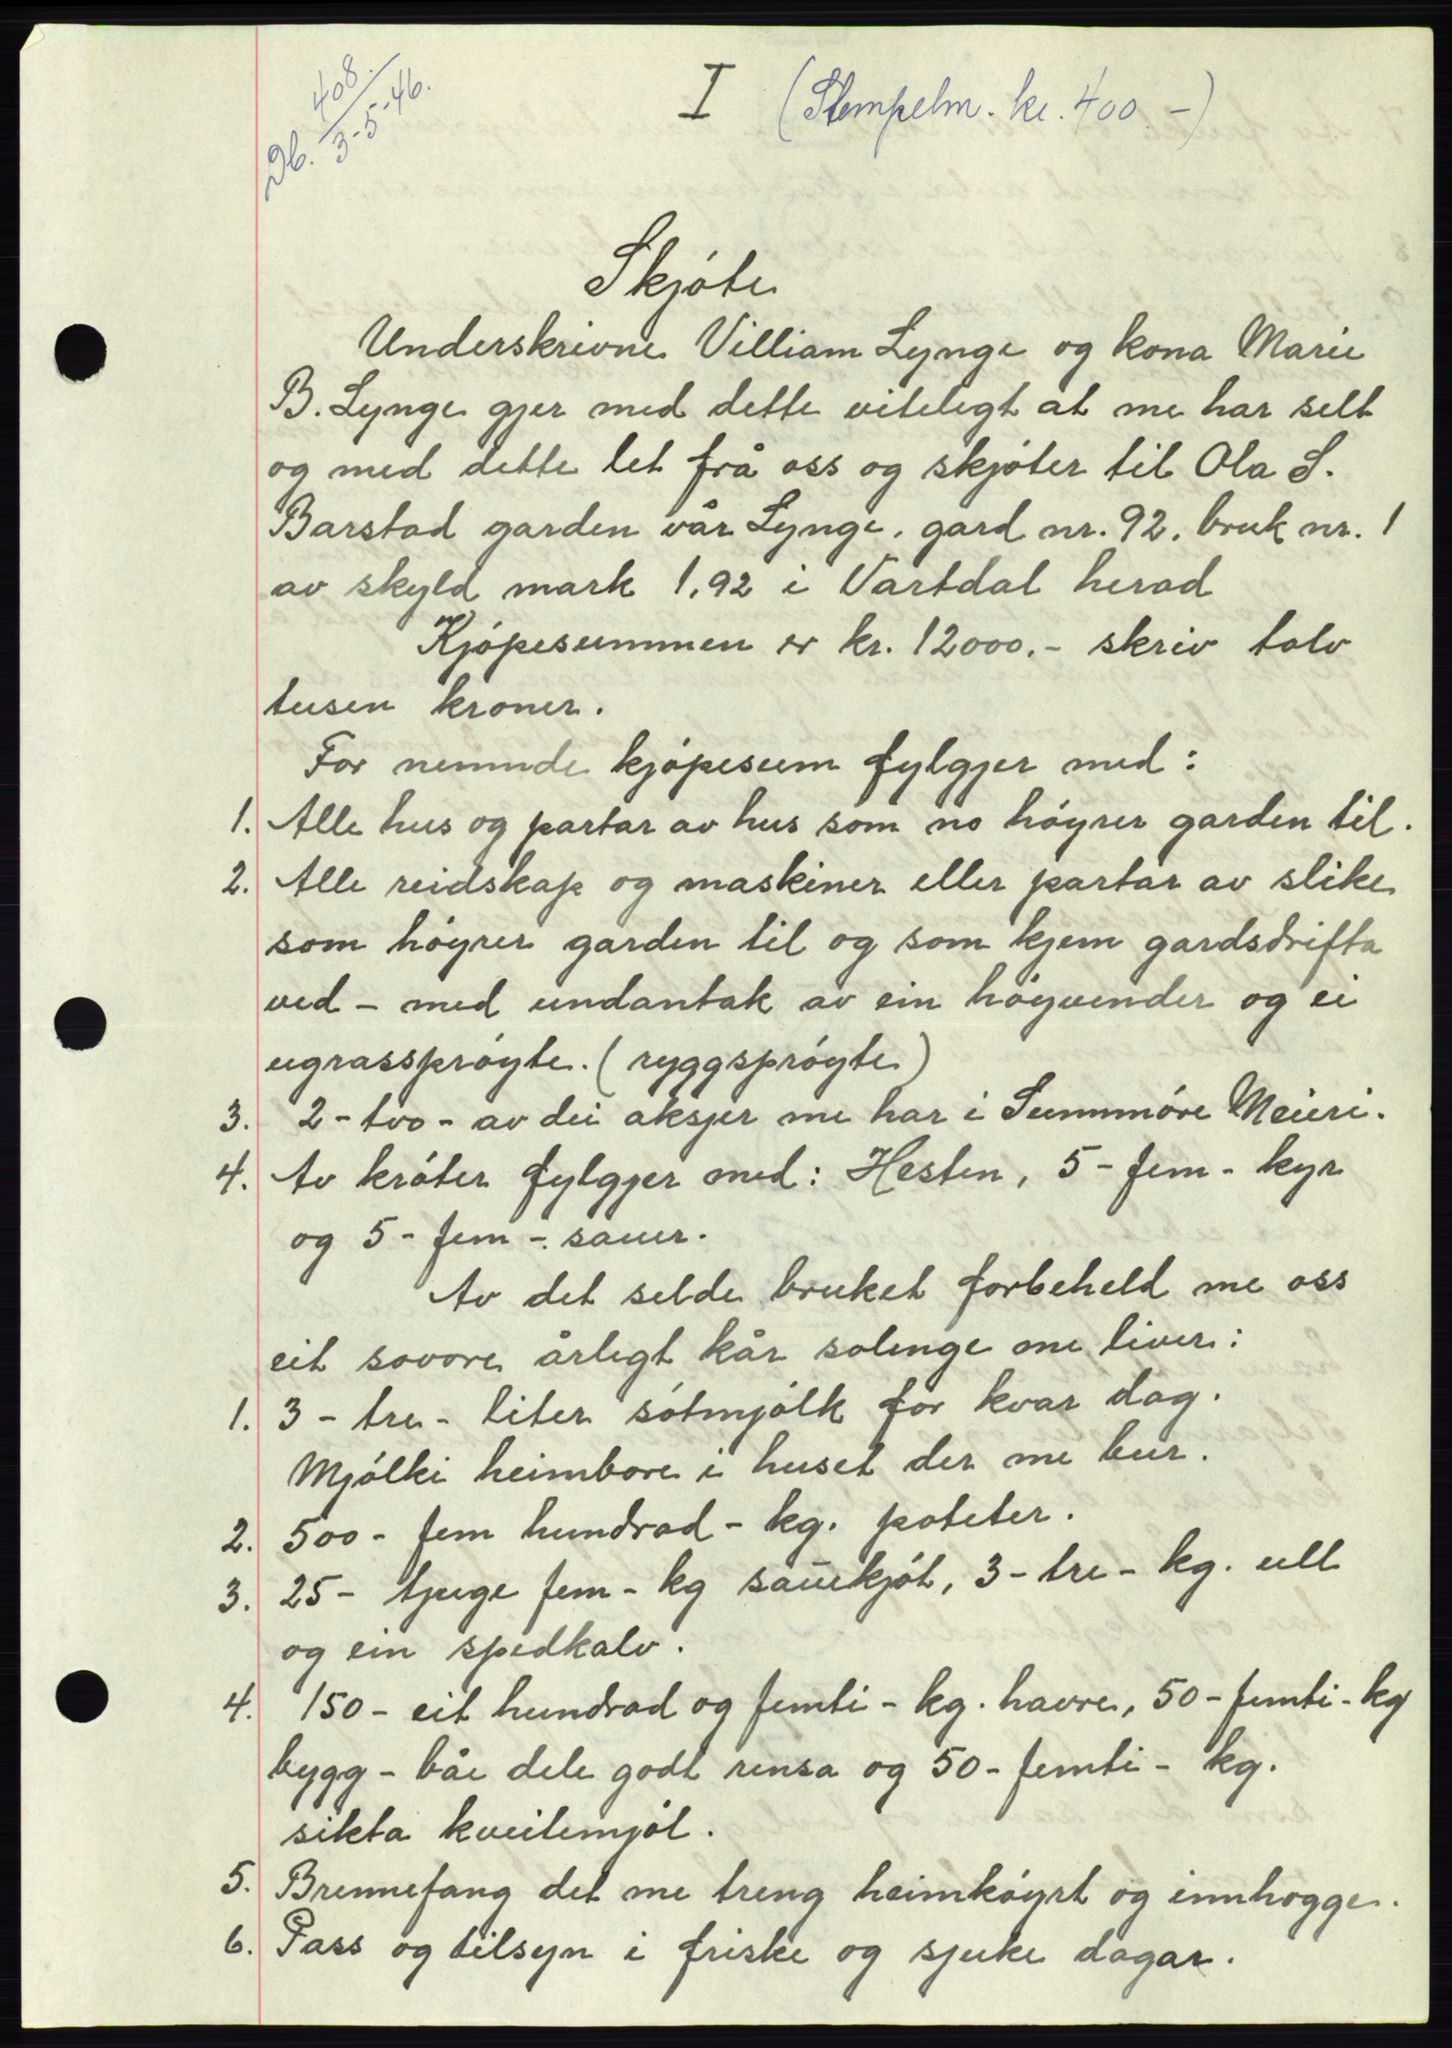 Db. 408 / 3-5-46.
I (Stempelm. kr. 400.-)
Skjóte
Underskrivne Villiam Lynge og kona Marie
B. Lynge gjer med dette vitelegt at me har selt
og med dette let frå oss og skjóter til Ola S.
Barstad garden vår Lynge, gard nr. 92, bruk nr. 1
av skyld mark 1,92 i Vartdal herad
Kjópesummen er kr. 12000.- skriv tolv
tusen kroner.
For nemnde kjópesum fylgjer med:
1. Alle hus og partar av hus som no hóyrer garden til.
2. Alle reidskap og maskiner eller partar av slike
som hóyrer garden til og som kjem gardsdrifta
ved - med undantak av ein hóyvender og ei
ugrasspróyte. (ryggspróyte)
3. 2 - tvo - av dei aksjer me har i Sunnmóre Meieri.
4. Av króter fylgjer med: Hesten, 5 - fem - kyr
og 5 - fem - sauer.
Av det selde bruket forbeheld me oss
eit sovore årlegt kår solenge me liver:
1. 3 - tre - liter sótmjólk for kvar dag.
Mjólki heimbore i huset der me bur.
2. 500 - fem hundrad - kg. poteter.
3. 25 - tjuge fem - kg sauekjót, 3 - tre - kg. ull
og ein spedkalv.
4. 150 - eit hundrad og femti - kg. havre, 50 - femti - kg
bygg - båe dele godt rensa og 50 - femti - kg.
sikta kveitemjól.
5. Brennefang det me treng heimkóyrt og innhogge.
6. Pass og tilsyn i friske og sjuke dagar.